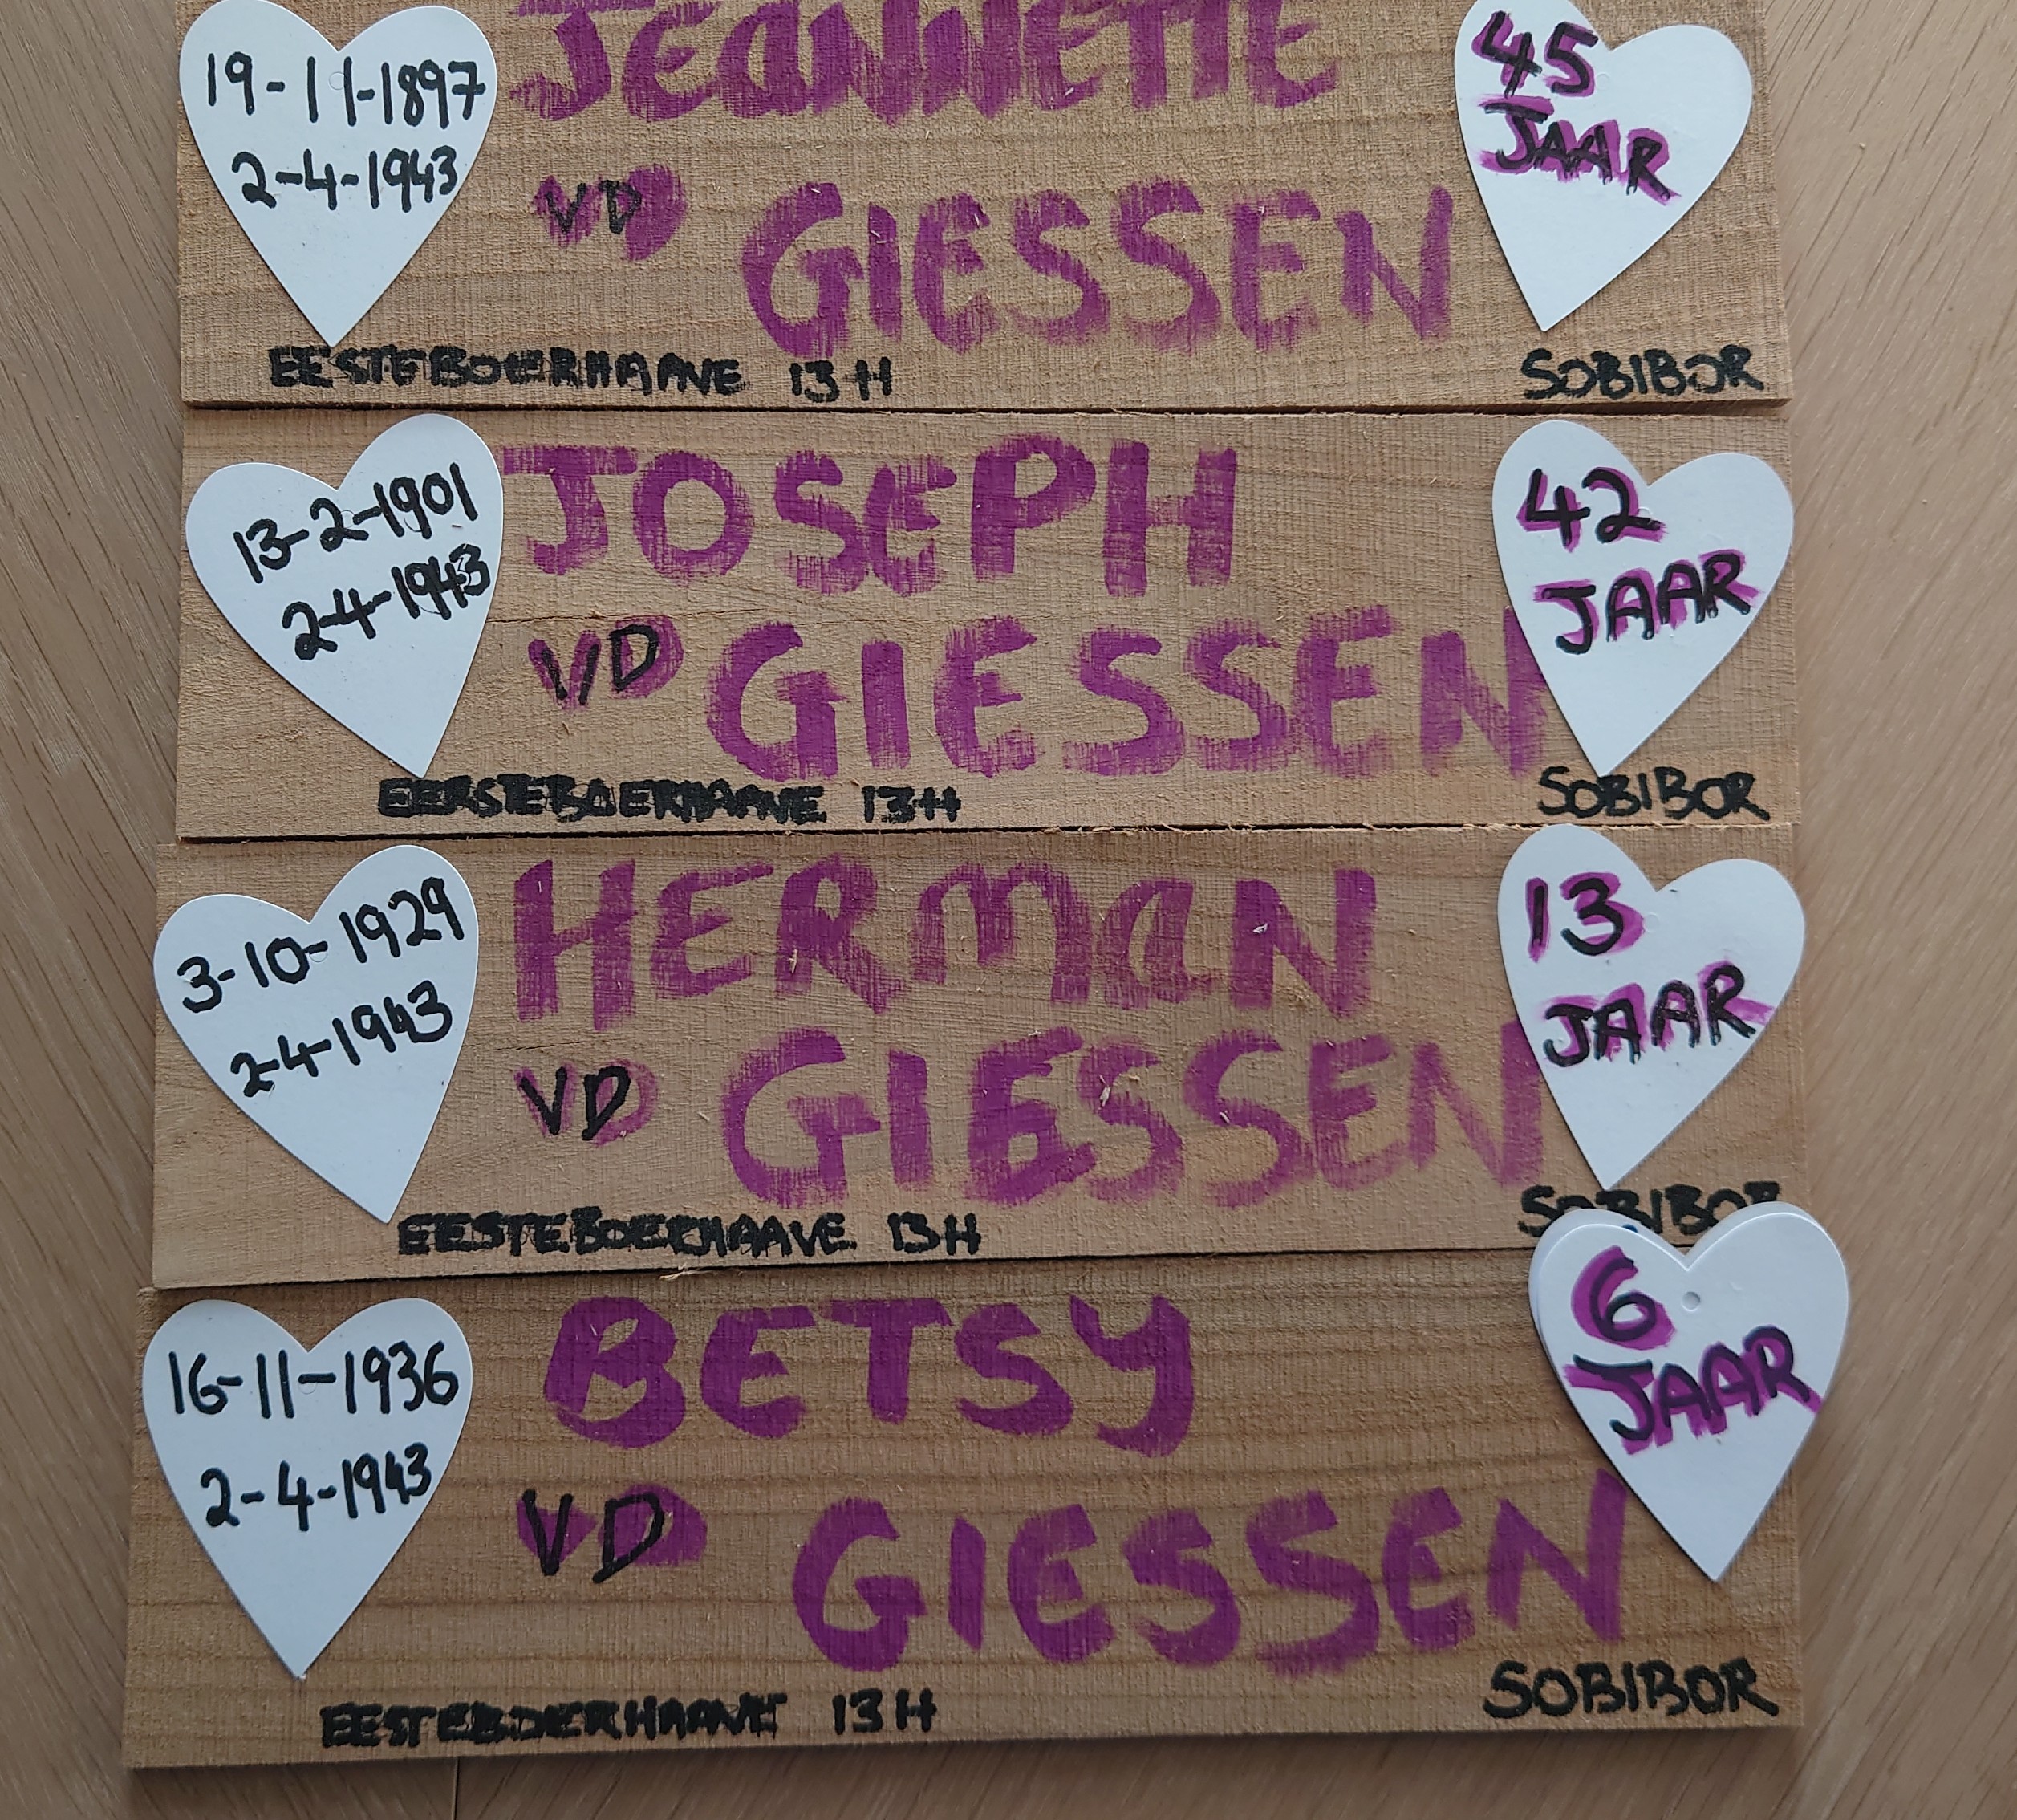 19-11-1897
2-4-1943
JEANNETTE
VD GIESSEN
45
JAAR
EESTEBOERHAAVE 13H
SOBIBOR
13-2-1901
2-4-1943
JOSEPH
VD GIESSEN
42
JAAR
EERSTEBOERHAAVE 13H
SOBIBOR
3-10-1929
2-4-1943
HERMAN
VD GIESSEN
13
JAAR
EESTEBOERHAAVE 13H
SOBIBOR
16-11-1936
2-4-1943
BETSY
VD GIESSEN
6
JAAR
EESTEBOERHAAVE 13H
SOBIBOR